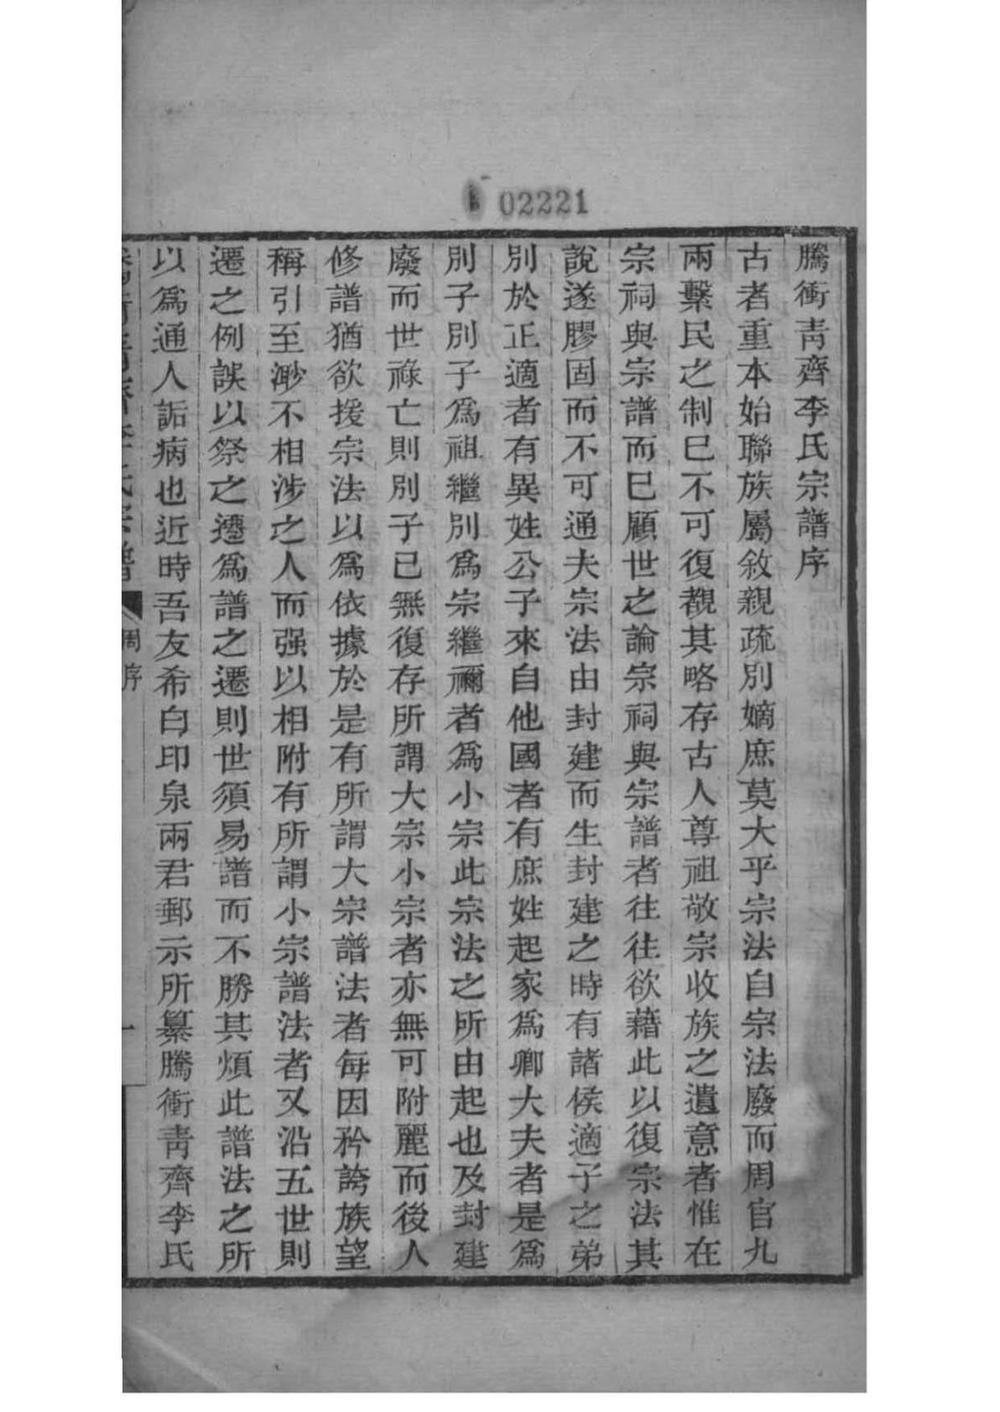 02221
騰衝青齊李氏宗譜序
古者重本始聯族屬敘親疏別嫡庶莫大乎宗法自宗法廢而周官九
兩繫民之制已不可復覩其略存古人尊祖敬宗收族之遺意者惟在
宗祠與宗譜而已顧世之論宗祠與宗譜者往往欲藉此以復宗法其
說遂膠固而不可通夫宗法由封建而生封建之時有諸侯適子之弟
別於正適者有異姓公子來自他國者有庶姓起家爲卿大夫者是爲
別子別子爲祖繼別爲宗繼禰者爲小宗此宗法之所由起也及封建
廢而世祿亡則別子已無復存所謂大宗小宗者亦無可附麗而後人
修譜猶欲援宗法以爲依據於是有所謂大宗譜法者每因矜誇族望
稱引至渺不相涉之人而强以相附有所謂小宗譜法者又沿五世則
遷之例誤以祭之遷爲譜之遷則世須易譜而不勝其煩此譜法之所
以爲通人詬病也近時吾友希白印泉兩君郵示所纂騰衝青齊李氏
騰衝青齊李氏宗譜
周序
一